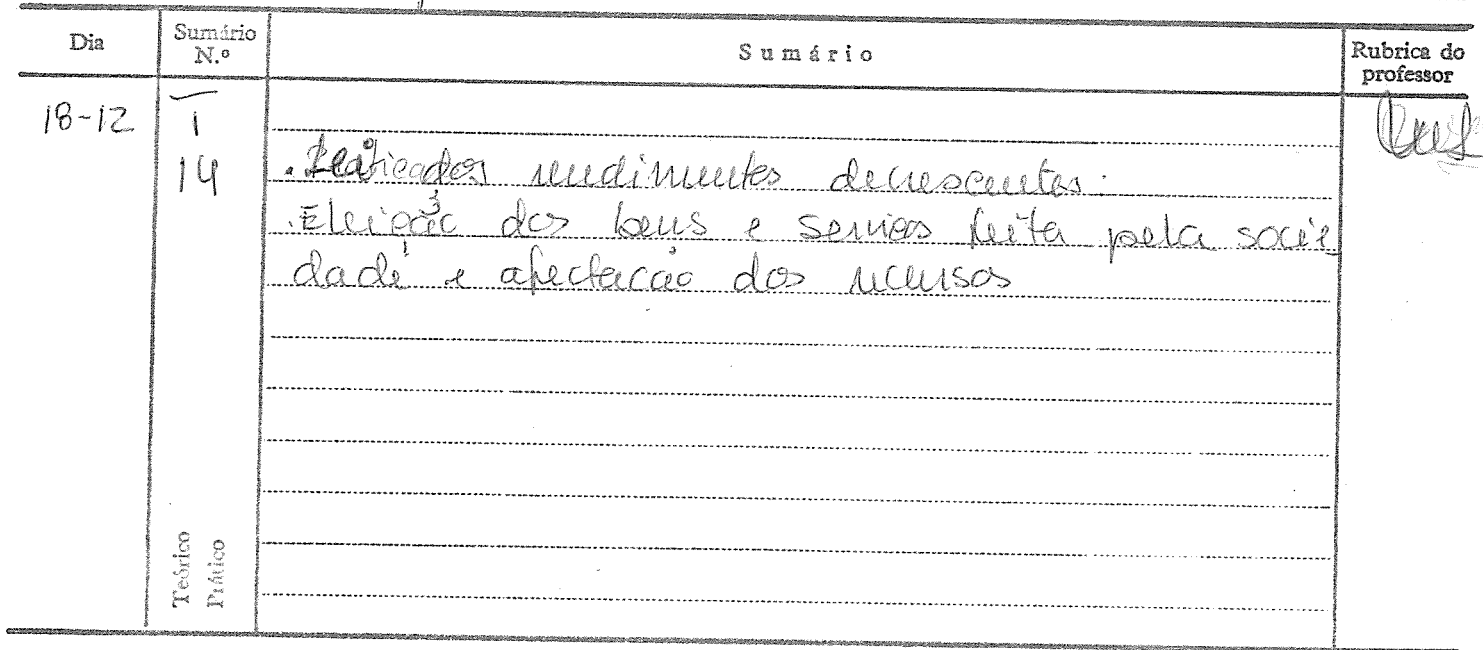 Dia Sumário N.º Sumário Rubrica do professor
18-12 T
14 rendimentos decrescentes.
. Eleição dos bens e serviços feita pela socie
dade e afectação dos recursos
Teórico
Prático